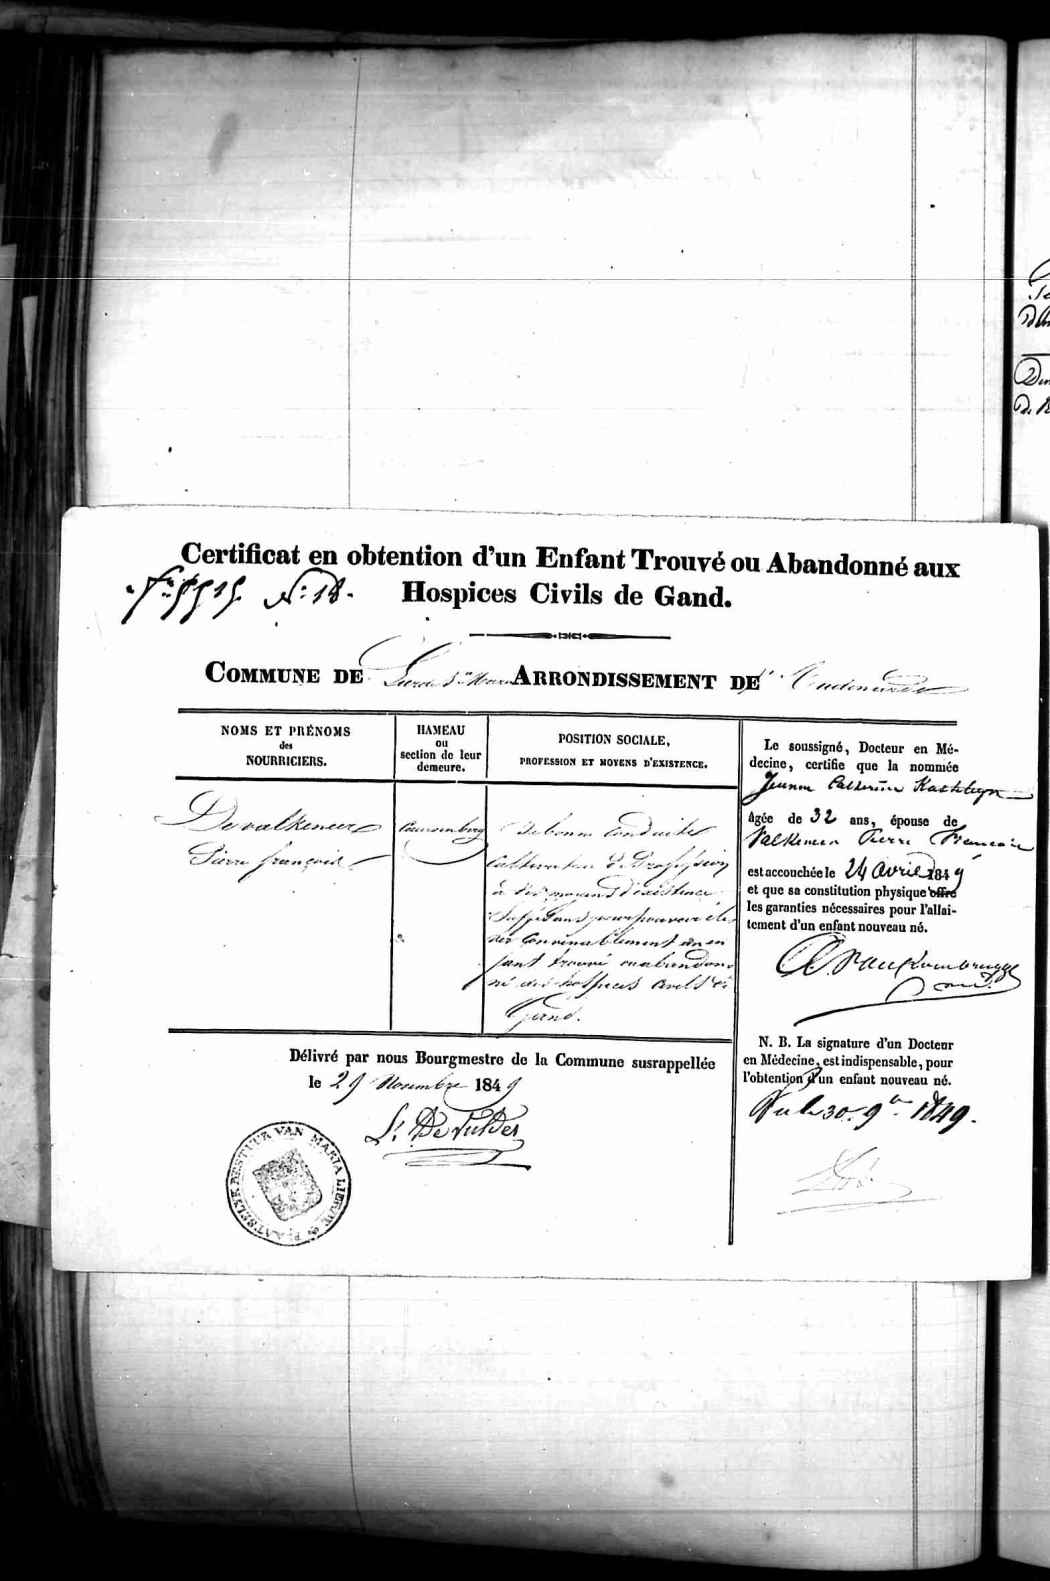 Certificat en obtention d'un Enfant Trouvé ou Abandonné aux
Hospices Civils de Gand.
N.° 18.
COMMUNE DE ARRONDISSEMENT DE
NOMS ET PRÉNOMS
des
NOURRICIERS.
HAMEAU
ou
section de leur
demeure.
POSITION SOCIALE,
PROFESSION ET MOYENS D'EXISTENCE.
Devalkeneer
Pierre françois
De bonne conduite
Cultivateur de Profession
à des moyens d'existence
suffisans pour pourvoir éle-
ver convenablement un en
fant trouvé ou abandon
né des hospices civils de
Gand.
Le soussigné, Docteur en Mé-
decine, certifie que la nommée
Jeanne Catherine
âgée de 32 ans, épouse de
Valkeneer Pierre Francois
est accouchée le 24 avril 1849
et que sa constitution physique offre
les garanties nécessaires pour l'allai-
tement d'un enfant nouveau né.
N. B. La signature d'un Docteur
en Médecine, est indispensable, pour
l'obtention d'un enfant nouveau né.
Vu le 30. 9bre 1849.
Délivré par nous Bourgmestre de la Commune susrappellée
le 29 Novembre 1849
De Tulder
PLAATSELYK BESTUUR VAN MARIA LIERDE